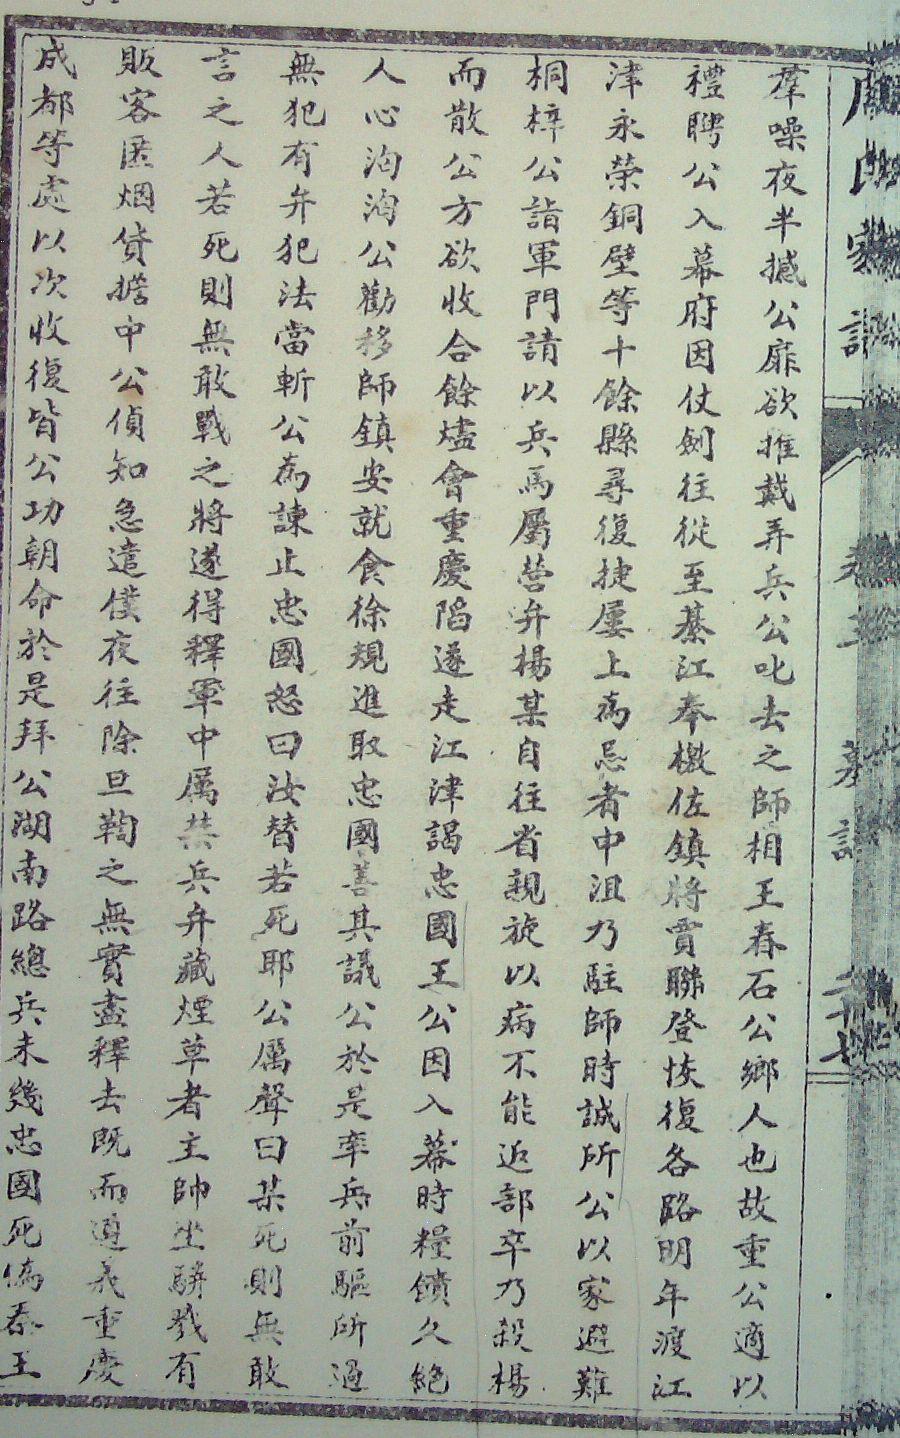 羣噪夜半撼公扉欲推戴弄兵公叱去之師相王春石公鄉人也故重公適以
禮聘公入幕府因仗劍往從至綦江奉檄佐鎮將賈聯登恢復各路明年渡江
津永榮銅璧等十餘縣尋復捷屢上為忌者中沮乃駐師時誠所公以家避難
桐梓公詣軍門請以兵馬屬營弁楊某自往省親旋以病不能近部卒乃殺楊
而散公方欲收合餘燼會重慶陷遂走江津謁忠國王公因入幕時糧饋久絕
人心洶洶公勸移師鎮安就食徐規進取忠國善其議公於是率兵前驅所過
無犯有弁犯法當斬公為諫止忠國怒曰汝替若死耶公厲聲曰某死則無敢
言之人若死則無敢戰之將遂得釋軍中厲禁兵弁藏煙草者主帥坐駢戮有
販客匿烟貨擔中公偵知急遣僕夜往除旦鞫之無實盡釋去既而遵義重慶
成都等處以次收復皆公功朝命於是拜公湖南路總兵未幾忠國死偽秦王